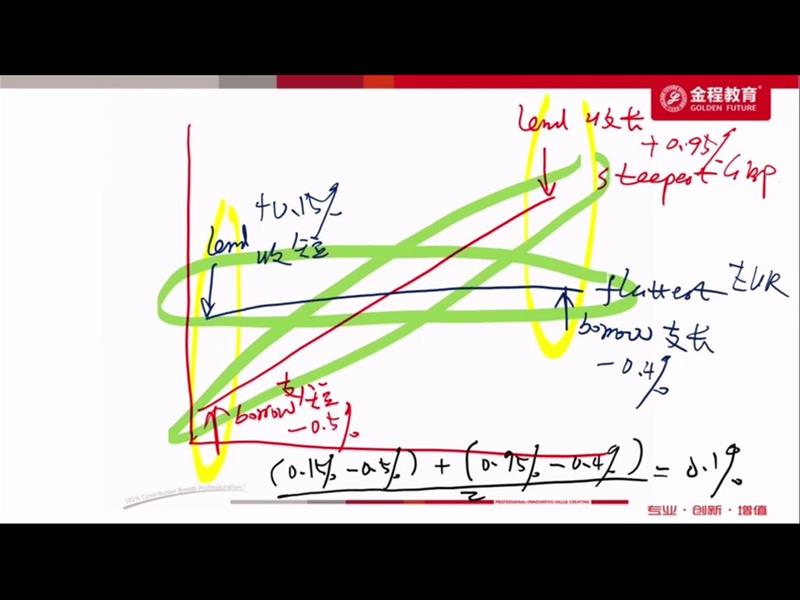 金程教育
GOLDEN FUTURE
lend 收长
+0.95%
steepest GBP
+0.15%
lend
收短
flattest EUR
borrow 支长
-0.4%
支短
borrow
-0.5%
(0.15% - 0.5%) + (0.95% - 0.4%) = 0.1%
2
100% Contribution Breeds Professionalism
PROFESSIONAL·INNOVATIVE·VALUE CREATING
专业·创新·增值